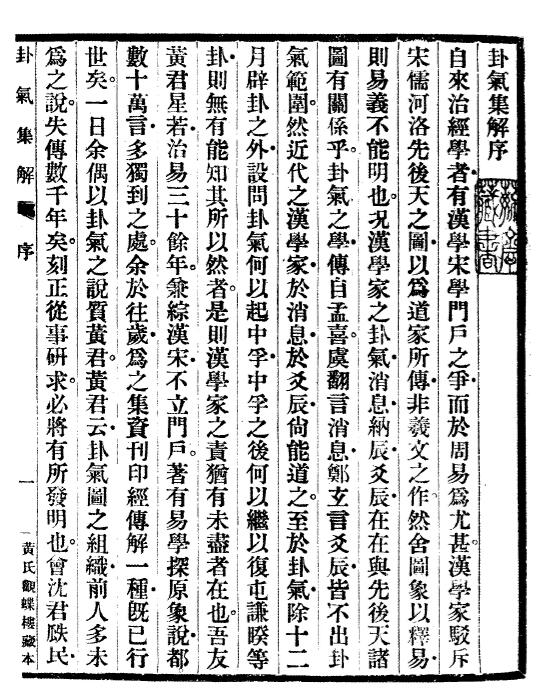 卦氣集解序
自來治經學者有漢學宋學門戶之爭而於周易爲尤甚漢學家駁斥
宋儒河洛先後天之圖以爲道家所傳非羲文之作然舍圖象以釋易
則易義不能明也況漢學家之卦氣消息納辰爻辰在在與先後天諸
圖有關係乎卦氣之學傳自孟喜虞翻言消息鄭玄言爻辰皆不出卦
氣範圍然近代之漢學家於消息於爻辰尚能道之至於卦氣除十二
月辟卦之外設問卦氣何以起中孚中孚之後何以繼以復屯謙睽等
卦則無有能知其所以然者是則漢學家之責猶有未盡者在也吾友
黃君星若治易三十餘年兼綜漢宋不立門戶著有易學探原象說都
數十萬言多獨到之處余於往歲爲之集資刊印經傳解一種既已行
世矣一日余偶以卦氣之說質黃君黃君云卦氣圖之組織前人多未
爲之說失傳數千年矣刻正從事研求必將有所發明也會沈君瓞民
卦氣集解
序
一
黃氏觀蝶樓藏本